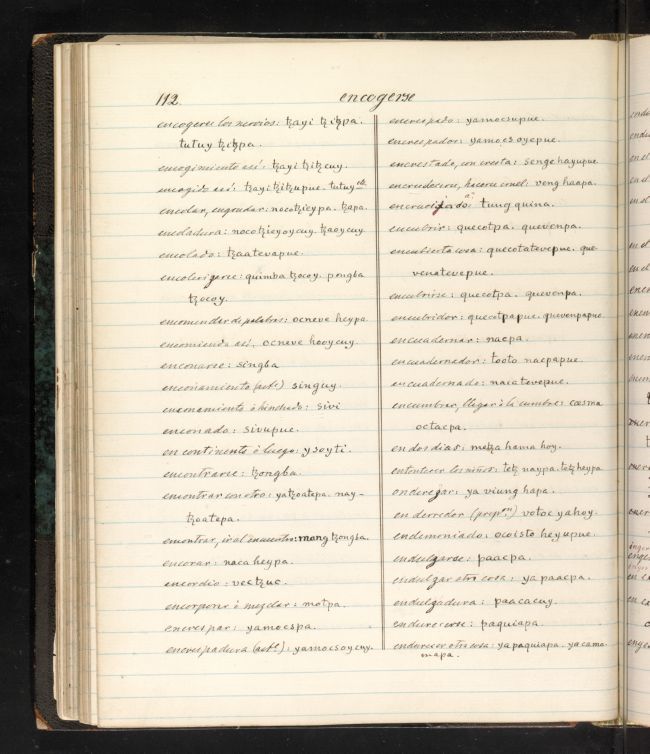 112.
encogerse
encogerse los nervios: tzayi tzitzpa.
tutuy tzitzpa.
encogimiento así: tzayi tzitzcuy.
encogido así: tzayi tzitzupue. tutuy etc.
encolar, engrudar: nocotzicypa. tzapa.
encoladura: nocotzicyoycuy. tzaoycuy
encolado: tzaatevapue.
encolerizarse: quimba tzocoy. pongba
tzocoy.
encomendar de palabras: ocneve heypa
encomienda así, ocneve hooycuy.
enconarse: singba
enconamiento (act.) singuy.
enconamiento ó hinchado: sivi
enconado: sivupue.
en continente ó luego: ysoyti.
encontrarse: tzongba.
encontrar con otro: yatzoatepa. nay-
tzoatepa.
encontrar, ir al encuentro: mang tzongba.
encorar: naca heypa.
encordio: vectzuc.
encorporar ó mezclar: motpa.
encrespar: yamocspa.
encrespadura (act.): yamocsoycuy.
encrespado: yamocsupue.
encrespador: yamocsoyepue.
encrestado, con cresta: senge hayupue
encrudecerse, hacerse cruel: veng haapa.
encrucijada: tung quina.
encubrir: quecotpa. quevenpa.
encubierta cosa: quecotatevepue. que-
venatevepue.
encubrirse: quecotpa. quevenpa.
encubridor: quecotpapue. quevenpapue
encuadernar: nacpa.
encuadernador: tooto nacpapue.
encuadernado: nacatevepue.
encumbrar, llegar á la cumbre: cosma
octacpa.
en dos dias: metza hama hoy.
entontecer los niños: tetz naypa. tetz heypa
enderezar: ya viung hapa.
en derredor (prepon.) votoc yahoy.
endemoniado: ocoisto heyupue.
endulzarse: paacpa.
endulzar otra cosa: ya paacpa.
endulzadura: paacacuy.
endurecerse: paquiapa.
endurecer otra cosa: ya paquiapa. ya came
mapa.